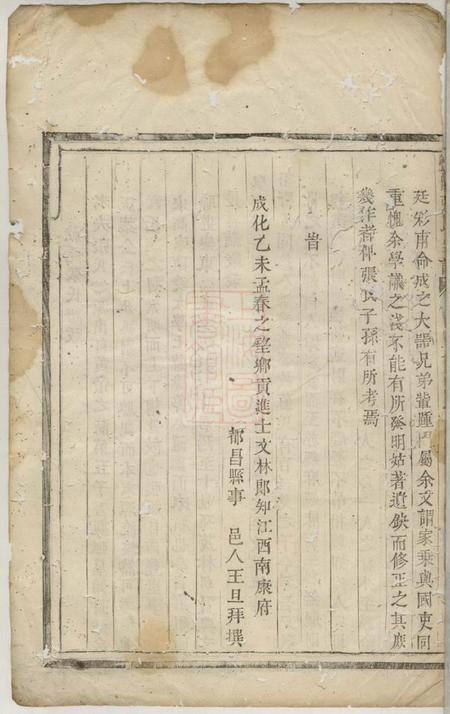 廷彩甫命戒之大器兄弟輩踵門屬余文謂家乘與國吏同
重愧余學議之淺不能有所發明姑著遺鈌而修正之其庶
幾作者俾張氏子孫有所考焉
旹
成化乙未孟春之望鄉貢進士文林郎知江西南康府
都昌縣事 邑人王旦拜撰